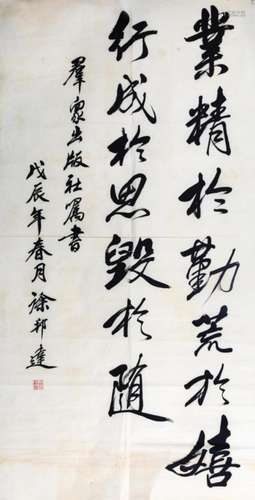 業精於勤荒於嬉
行成於思毀於隨
羣眾出版社属書
戊辰年春月徐邦達